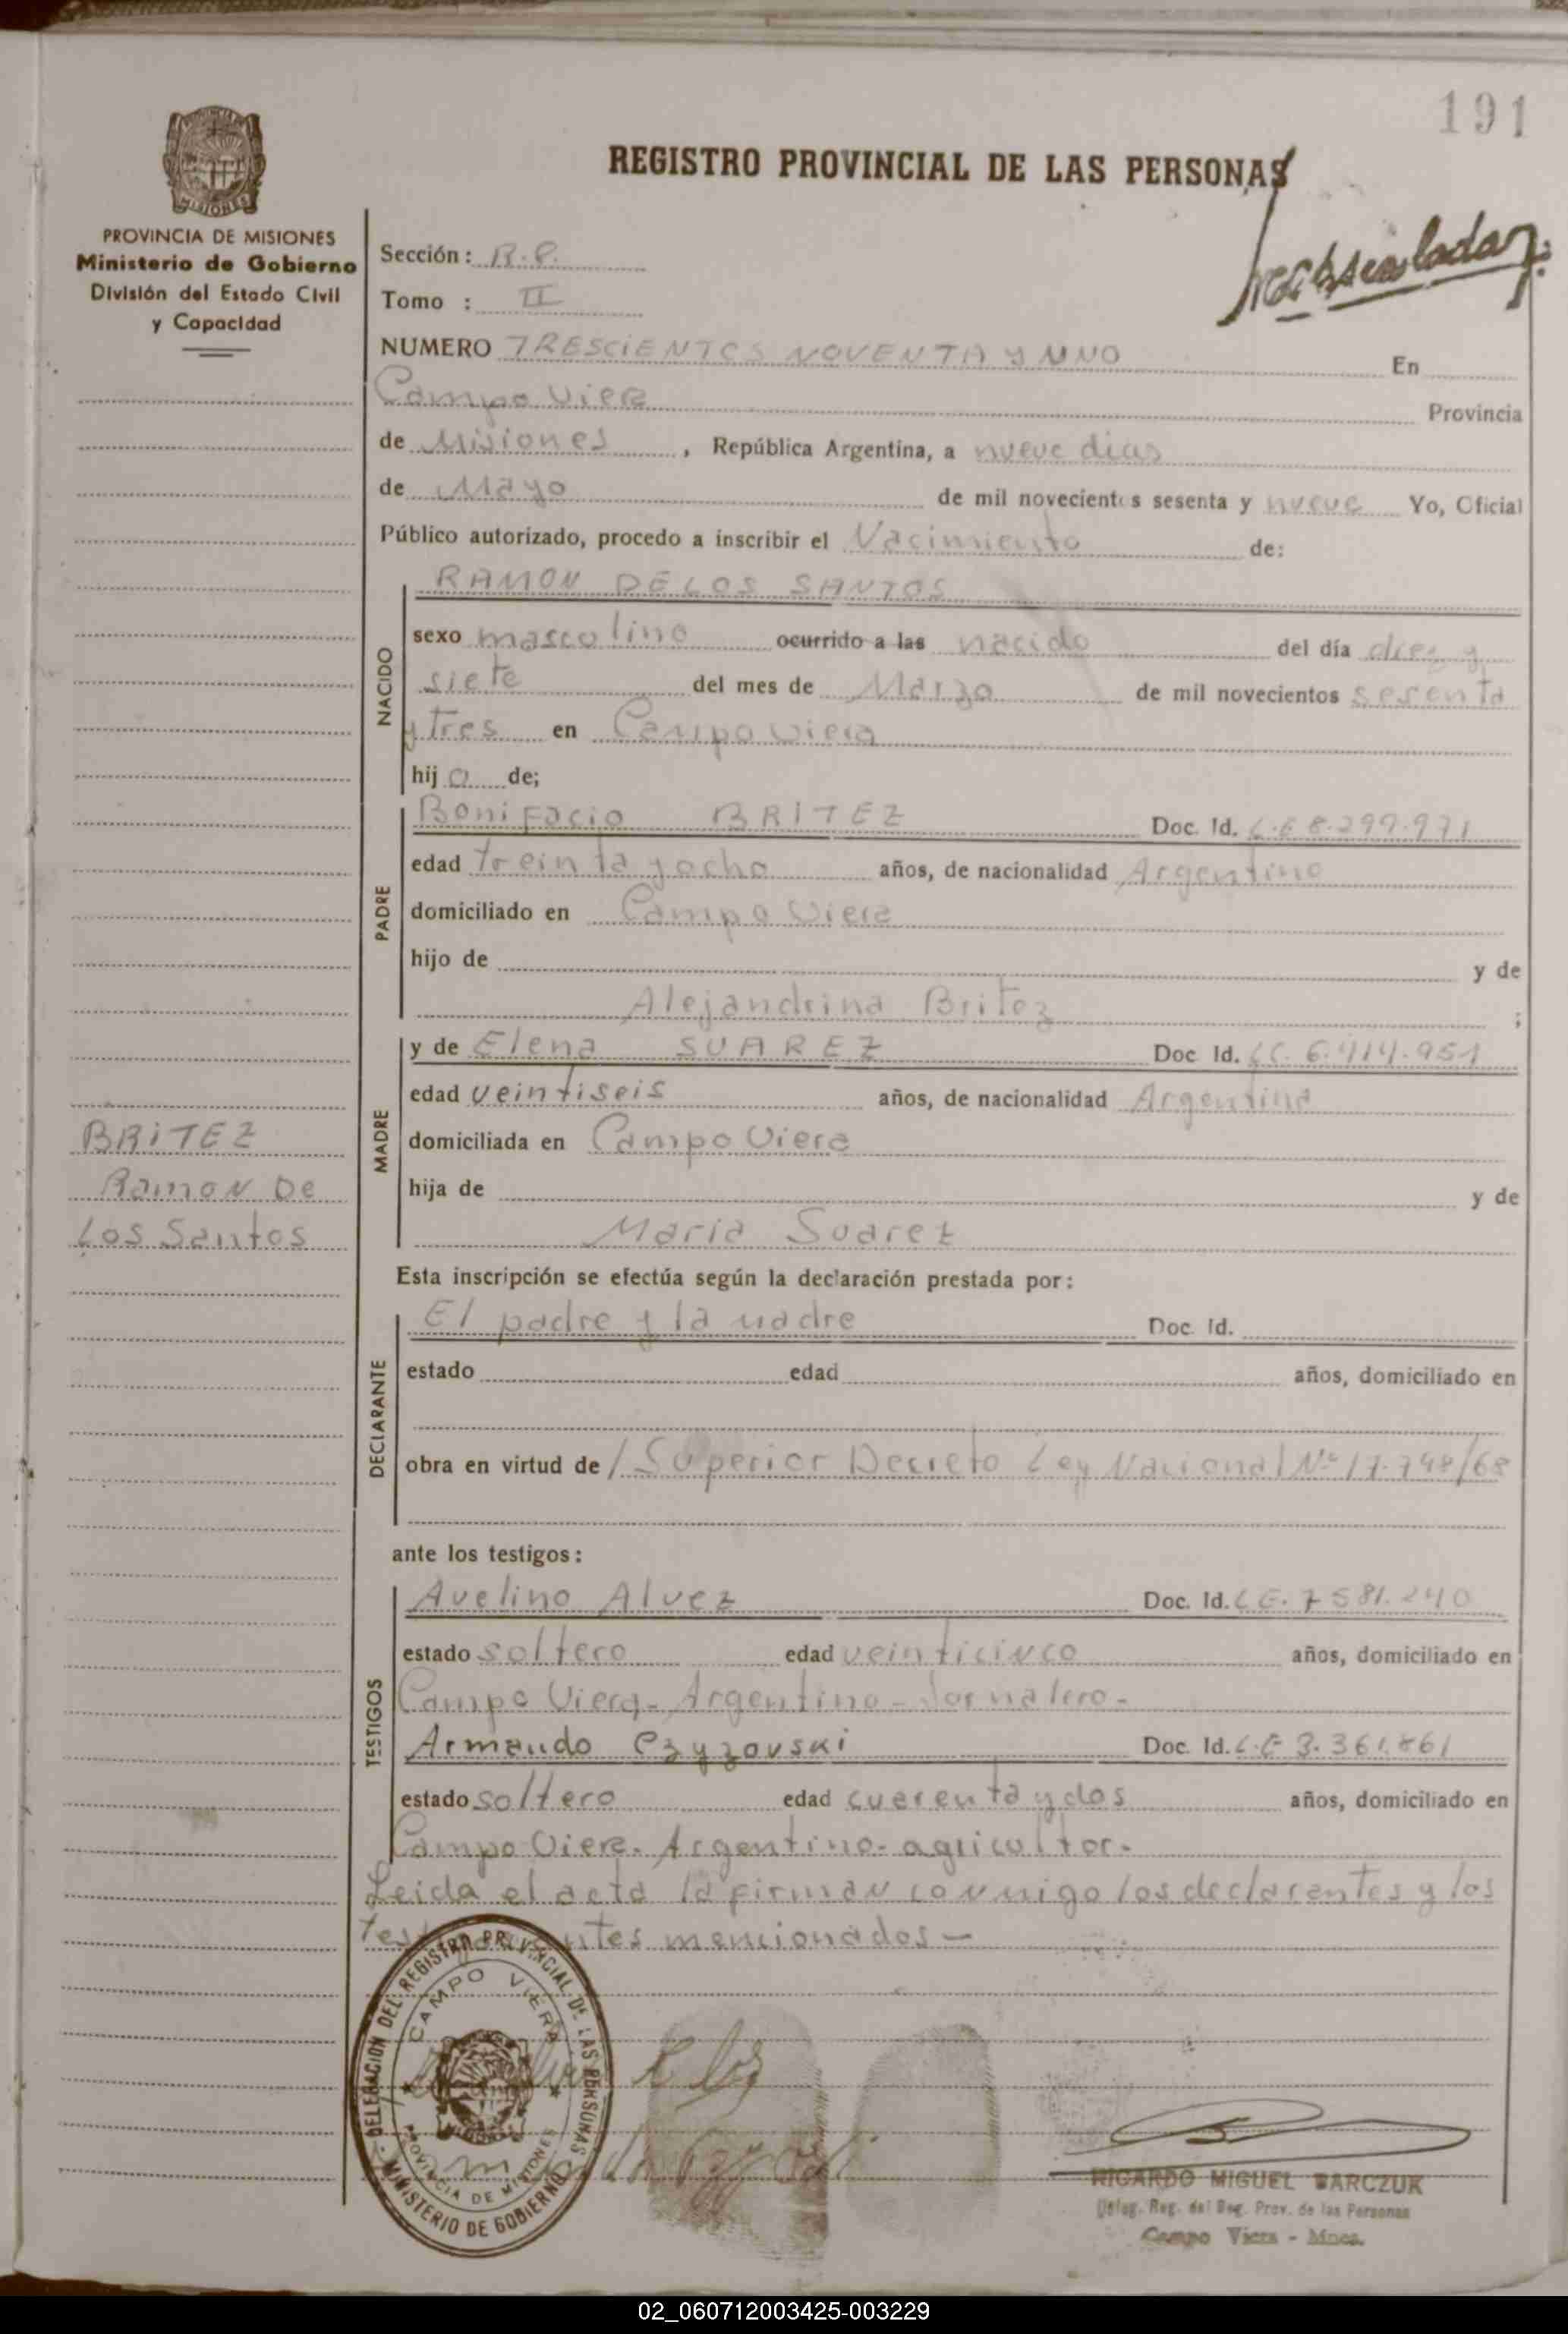 191
REGISTRO PROVINCIAL DE LAS PERSONAS
MISIONES
PROVINCIA DE MISIONES
Ministerio de Gobierno
División del Estado Civil
y Capacidad
Sección: R.P.
Tomo : II
NUMERO TRESCIENTOS NOVENTA Y UNO En
Campo Viera Provincia
de Misiones , República Argentina, a nueve dias
de Mayo de mil novecientos sesenta y nueve Yo, Oficial
Público autorizado, procedo a inscribir el Nacimiento de:
NACIDO
RAMON DE LOS SANTOS
sexo masculino ocurrido a las nacido del día diez y
siete del mes de Marzo de mil novecientos sesenta
y tres en Campo Viera
hij o de;
PADRE
Bonifacio BRITEZ Doc. Id. L.E 8.299.971
edad treinta y ocho años, de nacionalidad Argentino
domiciliado en Campo Viera
hijo de y de
Alejandrina Britez ;
MADRE
y de Elena SUAREZ Doc Id. LC. 6.414.951
edad veintiseis años, de nacionalidad Argentina
domiciliada en Campo Viera
hija de y de
Maria Suarez
BRITEZ
Ramon De
Los Santos
Esta inscripción se efectúa según la declaración prestada por:
DECLARANTE
El padre y la madre Doc. Id.
estado edad años, domiciliado en
obra en virtud de / Superior Decreto Ley Nacional Nº 17.748/68
ante los testigos:
TESTIGOS
Avelino Alvez Doc. Id. L.E. 7 581.240
estado soltero edad veinticinco años, domiciliado en
Campo Viera - Argentino - Jornalero -
Armando Czyzovski Doc. Id. L.E 3.361.861
estado soltero edad cuerenta y dos años, domiciliado en
Campo Viera. Argentino - agricultor.
Leida el acta la firman conmigo los declarantes y los
mencionados -
DELEGACION DEL REGISTRO PROVINCIAL DE LAS PERSONAS
CAMPO VIERA
PROVINCIA DE MISIONES
MINISTERIO DE GOBIERNO
RICARDO MIGUEL BARCZUK
Deleg. Reg. del Reg. Prov. de las Personas
Campo Viera - Mnes.
02_060712003425-003229